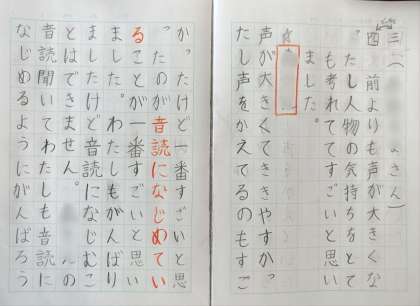 三(ょさん)
四 前よりも声が大きくな
ったし人物の気持ちをとて
も考れててすごいと思い
ました。
声が大きくてききやすかっ
たし声をかえてるのもすご
かったけど一番すごいと思
ったのが音読になじめてい
ることが一番すごいと思い
ました。わたしもがんばり
ましたけど音読になじむこ
とはできません。んの
音読聞いてわたしも音読に
なじめるようにがんばろう